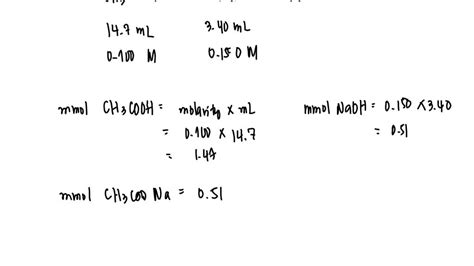 14.7 mL 3.40 mL
0.100 M 0.150 M
mmol CH3COOH = molarity × mL mmol NaOH = 0.150 × 3.40
= 0.100 × 14.7 = 0.51
= 1.47
mmol CH3COO Na = 0.51